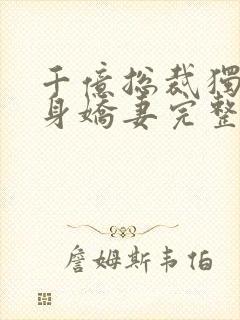 千億總裁獨
身嬌妻完整
詹姆斯韦伯